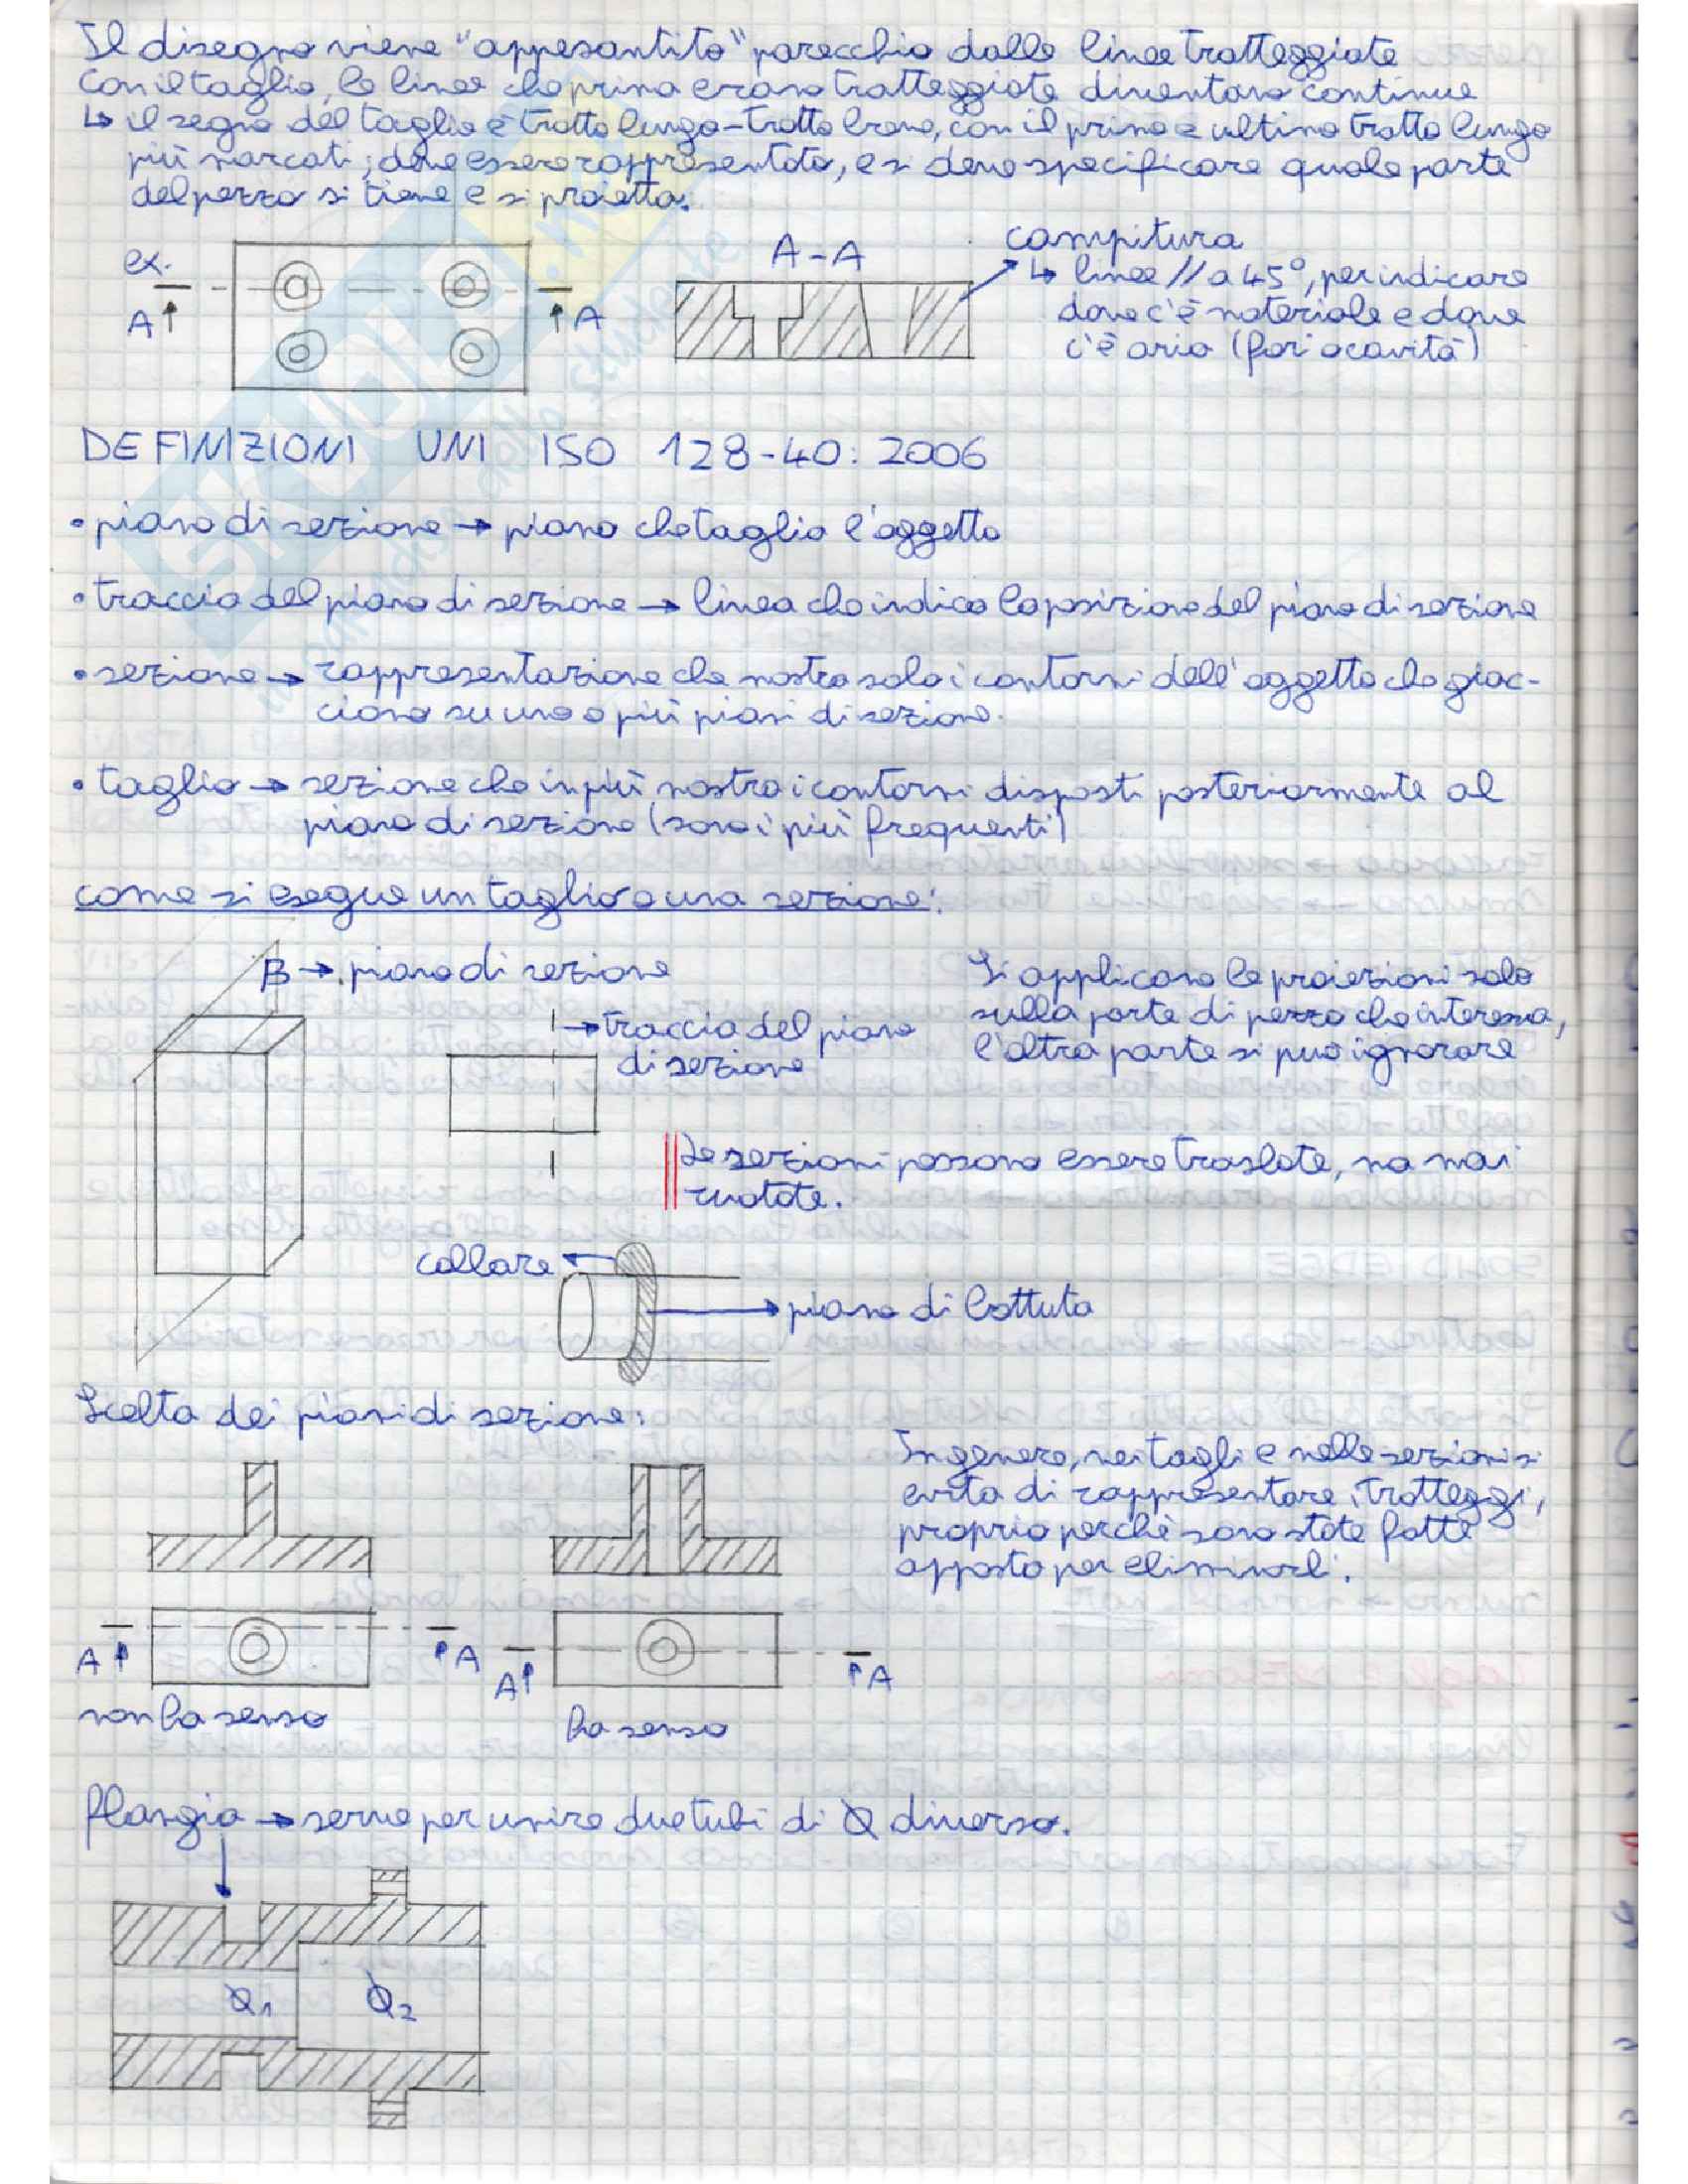 Il disegno viene "appesantito" parecchio dalle linee tratteggiate
Con il taglio, le linee che prima erano tratteggiate diventano continue
↳ il segno del taglio è tratto lungo-tratto breve, con il primo e ultimo tratto lungo
più marcati; deve essere rappresentato, e si deve specificare quale parte
del pezzo si tiene e si proietta.
ex.
A
A
A-A
campitura
↳ linee // a 45°, per indicare
dove c'è materiale e dove
c'è aria (fori o cavità)
DEFINIZIONI UNI ISO 128-40:2006
• piano di sezione → piano che taglia l'oggetto
• traccia del piano di sezione → linea che indica la posizione del piano di sezione
• sezione → rappresentazione che mostra solo i contorni dell'oggetto che giac-
ciono su uno o più piani di sezione.
• taglio → sezione che in più mostra i contorni disposti posteriormente al
piano di sezione (sono i più frequenti)
come si esegue un taglio o una sezione:
β → piano di sezione
→ traccia del piano
di sezione
Si applicano le proiezioni solo
sulla parte di pezzo che interessa,
l'altra parte si può ignorare
Le sezioni possono essere traslate, ma mai
ruotate.
collare
piano di battuta
Scelta dei piani di sezione:
In genere, nei tagli e nelle sezioni si
evita di rappresentare i tratteggi,
proprio perchè sono state fatte
apposta per eliminarli.
A
A
A
A
non ha senso
ha senso
flangia → serve per unire due tubi di Ø diverso.
Ø1
Ø2